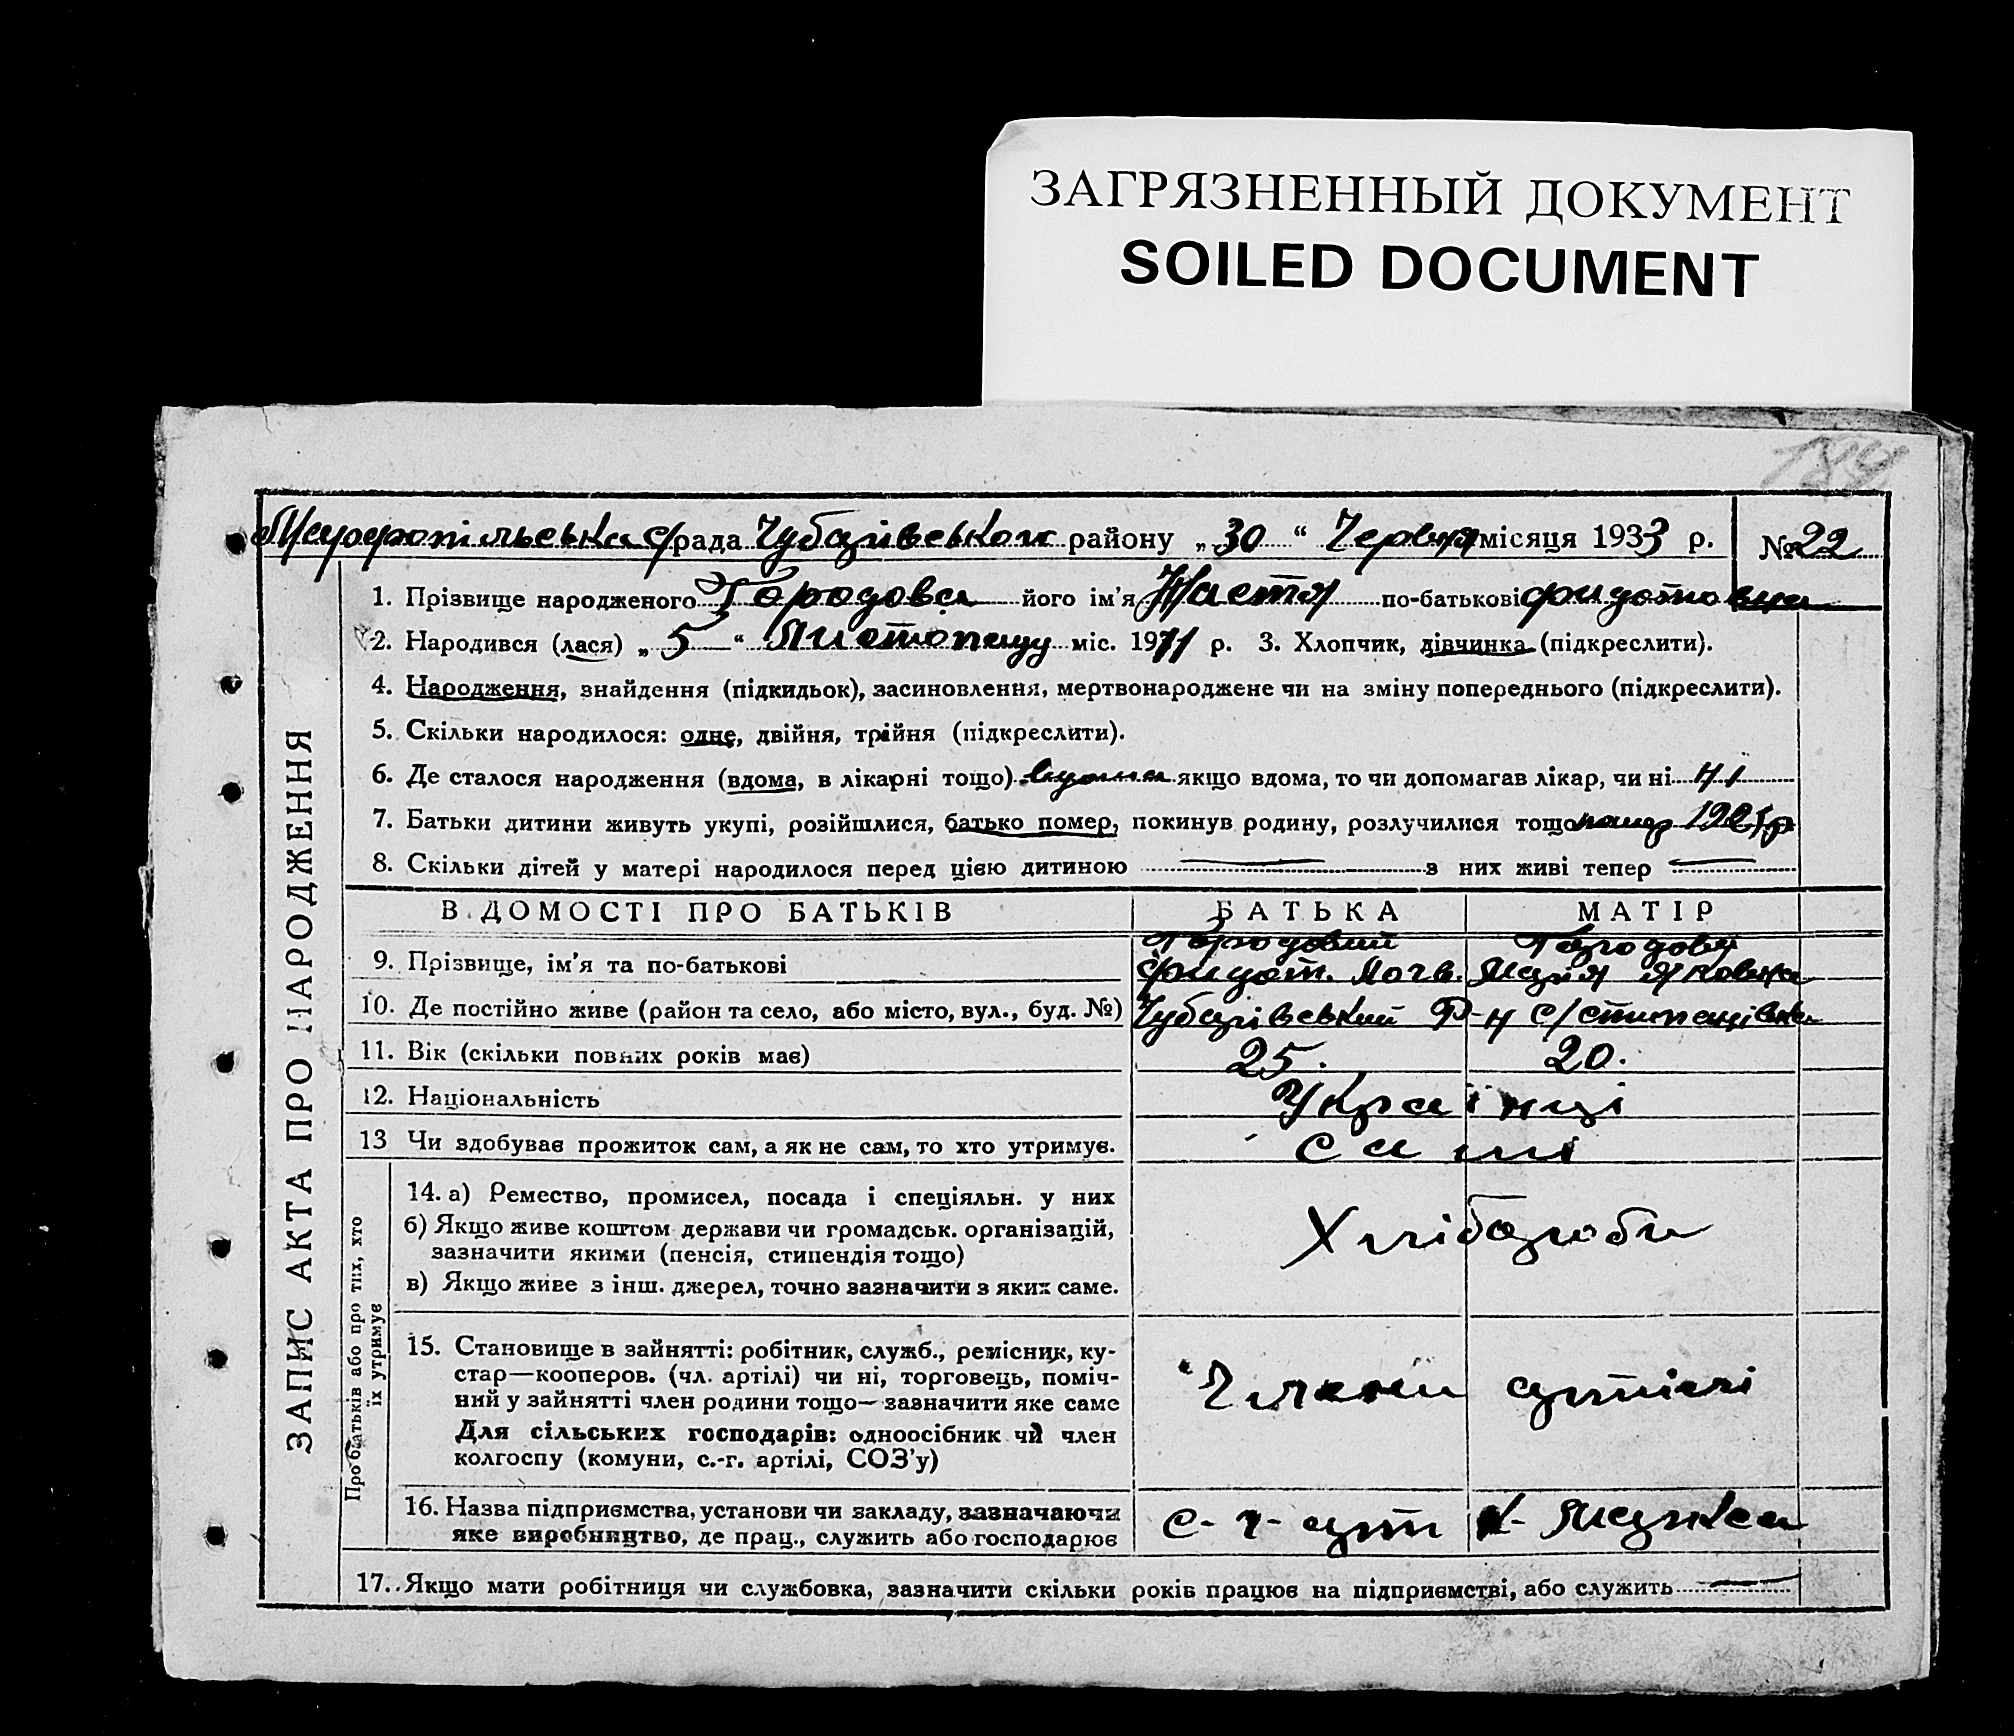 ЗАГРЯЗНЕННЫЙ ДОКУМЕНТ
SOILED DOCUMENT
184
с/рада Чубарівської району „ 30 “ Червня місяця 1933 р. № 22
1. Прізвище народженого Городова його ім'я Настя по-батькові Фидотовна
2. Народився (лася) „ 5 “ Листопаду міс. 1911 р. 3. Хлопчик, дівчинка (підкреслити).
4. Народження, знайдення (підкидьок), засиновлення, мертвонароджене чи на зміну попереднього (підкреслити).
5. Скільки народилося: одне, двійня, трійня (підкреслити).
6. Де сталося народження (вдома, в лікарні тощо) вдома якщо вдома, то чи допомагав лікар, чи ні ні
7. Батьки дитини живуть укупі, розійшлися, батько помер, покинув родину, розлучилися тощо
8. Скільки дітей у матері народилося перед цією дитиною — з них живі тепер —
В ДОМОСТІ ПРО БАТЬКІВ БАТЬКА МАТІР
9. Прізвище, ім'я та по-батькові Городовий Городова
Фидот. Марія Яковна
10. Де постійно живе (район та село, або місто, вул., буд. №) Чубарівський Р-н С/Степанівка
11. Вік (скільки повних років має) 25. 20.
12. Національність Українці
13 Чи здобуває прожиток сам, а як не сам, то хто утримує. Самі
14. а) Ремество, промисел, посада і спеціяльн. у них
б) Якщо живе коштом держави чи громадськ. організацій,
зазначити якими (пенсія, стипендія тощо)
в) Якщо живе з інш. джерел, точно зазначити з яких саме.
Хлібороби
15. Становище в зайнятті: робітник, служб., ремісник, ку-
стар—кооперов. (чл. артілі) чи ні, торговець, поміч-
ний у зайнятті член родини тощо—зазначити яке саме
Для сільських господарів: одноосібник чи член
колгоспу (комуни, с.-г. артілі, СОЗ'у)
Члени артілі
16. Назва підприємства, установи чи закладу, зазначаючи
яке виробництво, де прац., служить або господарює
с-г- арт К- Маркса
17. Якщо мати робітниця чи службовка, зазначити скільки років працює на підприємстві, або служить —
ЗАПИС АКТА ПРО НАРОДЖЕННЯ
Про батьків або про тих, хто
їх утримує